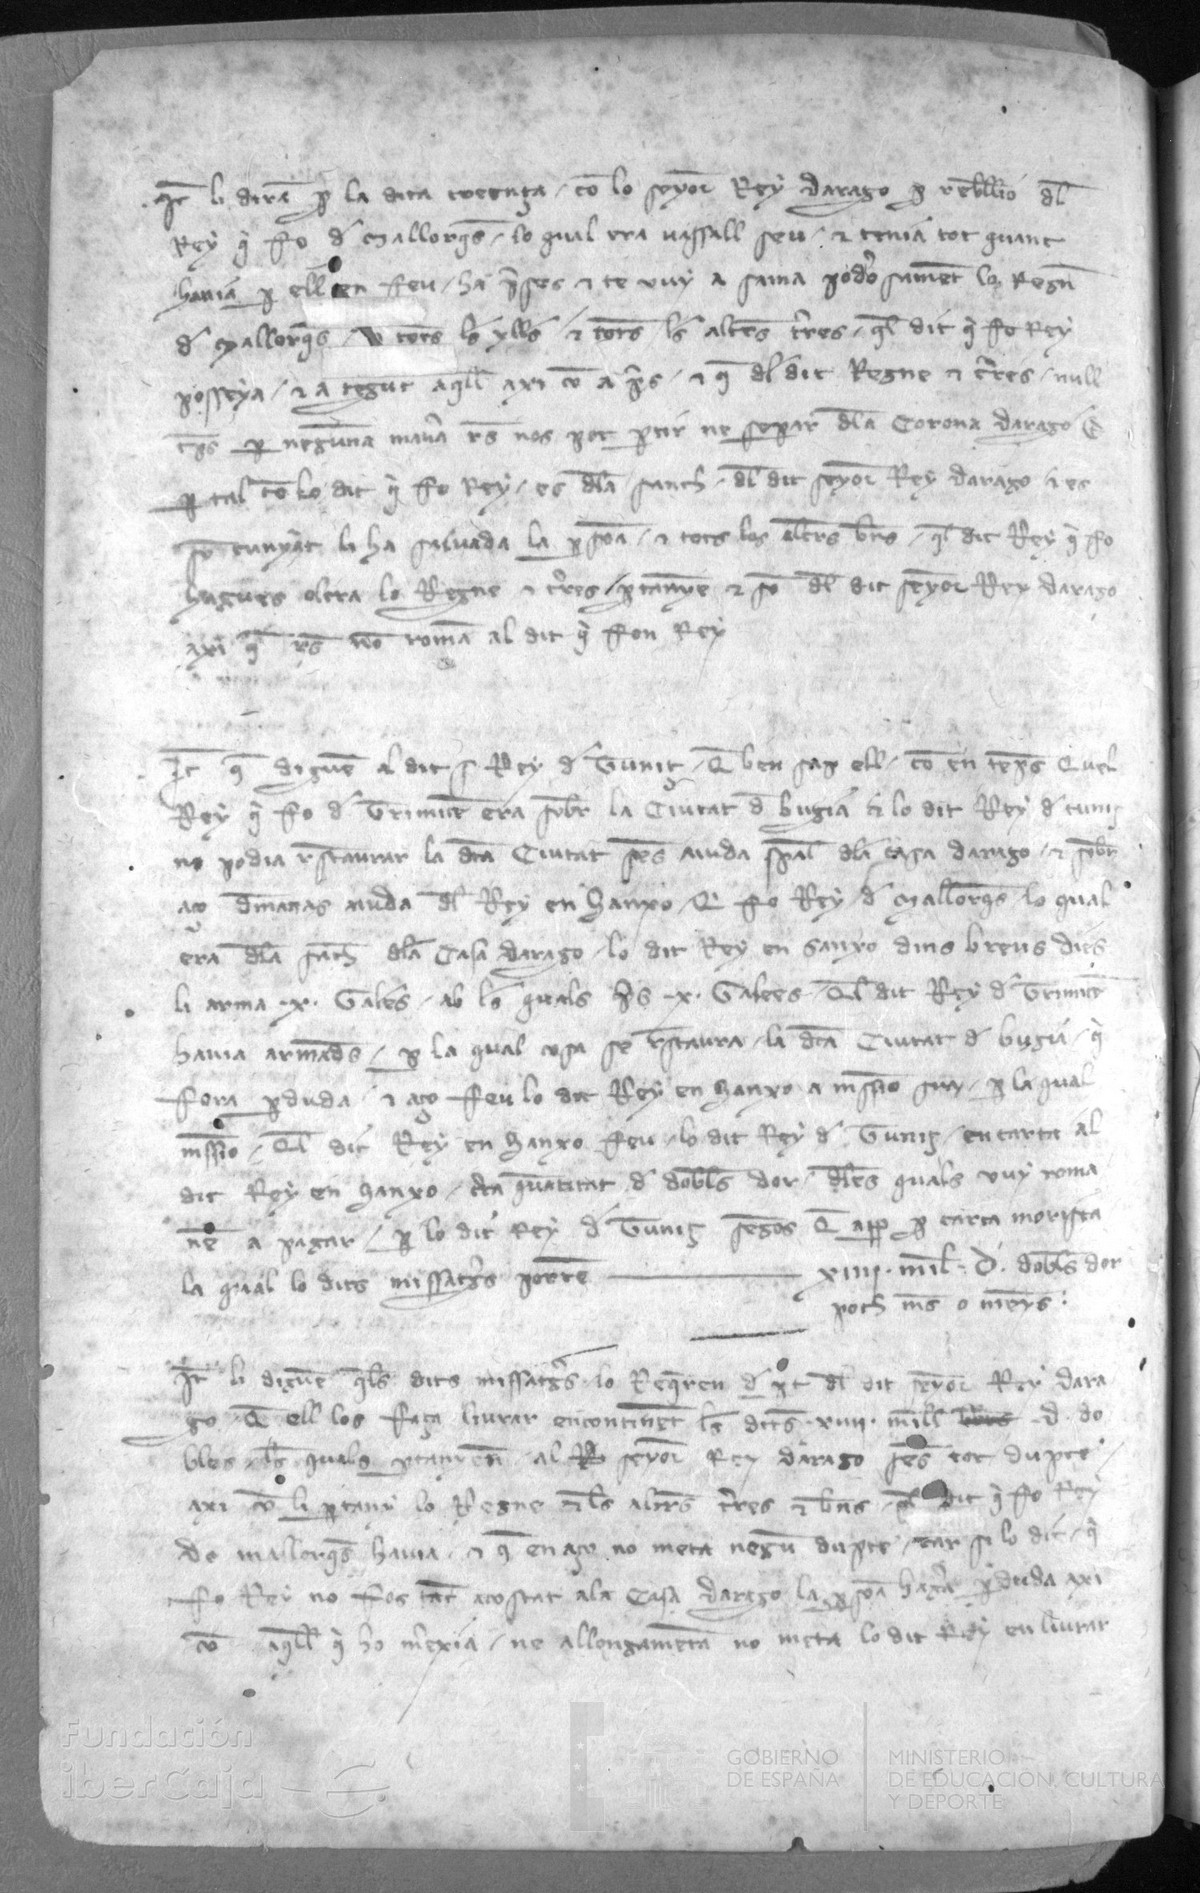 It li diran p la dita creença / co lo senyor Rey darago p rebellio dl
Rey q fo d Mallorqs / lo qual era vassall seu / et tenia tot quant
hauia p ell en feu / ha preses et te vuy a sa ma poderosament lo Regne
d Mallorqs et totes les ylles et totes les altres terres / ql dit q fo Rey
possehya / et a tegut aqll axi co a pres / et q dl dit Regne et terres / null
temps p neguna manera res nos pot partir ne separ dla Corona darago E
p tal co lo dit q fo Rey / es dla sanch dl dit senyor Rey darago et es
so cunyat li ha saluada la psona / et tots los altres bens / ql dit Rey q fo
hagues oltra lo Regne et terres / ptanyen et so dl dit senyor Rey darago
axi q res no roman al dit q fon Rey
It q diguen al dit Rey d Tuniç / Q ben sap ell / co en temps quel
Rey q fo d Trimice era sobre la Ciutat d bugia et lo dit Rey d tuniç
no podia restaurar la dta Ciutat ses aiuda spal dla casa darago / et sobre
aço dmanas aiuda dl Rey en Sanxo / Q fo Rey d Mallorqs lo qual
era dla sanch dla Casa darago / lo dit Rey en Sanxo dins breus dies
li arma .x. Galees / ab les quals .x. Galees / Ql dit Rey d Trimice
hauia armades / p la qual cosa se restaura / la dta Ciutat d bugia / q
fora pduda / et aço feu lo dit Rey en Sanxo a messio sua / p la qual
messio / Ql dit Rey en Sanxo feu / lo dit Rey d Tuniç / en carta al
dit Rey en Sanxo / certa quantitat d dobles dor / dles quals vuy roma
nen a pagar / p lo dit Rey d Tuniç segons Q app p carta morisca
la qual lo dits missatgers porten xiiij. mil. D. dobles dor
poch mes o menys:
It li diguen qls dits missatgers lo Requeren d part dl dit senyor Rey dara
go Q ell los faça liurar encontinent les dites .xiiij. mill D. do
bles / les quals ptanyen al senyor Rey darago ses tot dupte /
axi co li ptany lo Regne et les altres terres et bens / ql dit q fo Rey
de mallorqs hauia / et q en aço no meta negun dupte / car si lo dit / q
fo Rey no fos tant acostat ala Casa darago la psona hagra pduda axi
co aqll q ho merexia / ne allongament no meta lo dit Rey en liurar
Fundación
iberCaja
GOBIERNO
DE ESPAÑA
MINISTERIO
DE EDUCACIÓN, CULTURA
Y DEPORTE